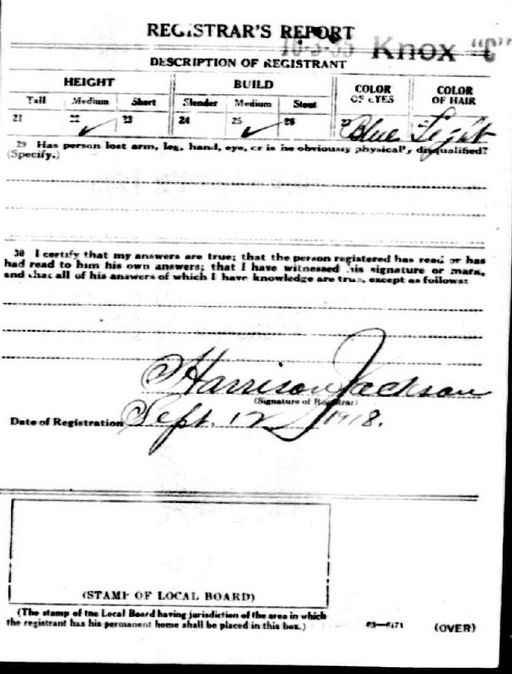 REGISTRAR'S REPORT
Knox "C"
DESCRIPTION OF REGISTRANT
HEIGHT BUILD COLOR OF EYES COLOR OF HAIR
Tall Medium Short Slender Medium Stout
21 22 ✓ 23 24 25 ✓ 26 27 Blue Light
29 Has person lost arm, leg, hand, eye, or is he obviously physically disqualified?
(Specify.)
30 I certify that my answers are true; that the person registered has read or has
had read to him his own answers; that I have witnessed his signature or mark,
and that all of his answers of which I have knowledge are true, except as follows:
Harrison Jackson
(Signature of Registrar)
Date of Registration Sept. 12 1918.
(STAMP OF LOCAL BOARD)
(The stamp of the Local Board having jurisdiction of the area in which
the registrant has his permanent home shall be placed in this box.)
03—6171 (OVER)